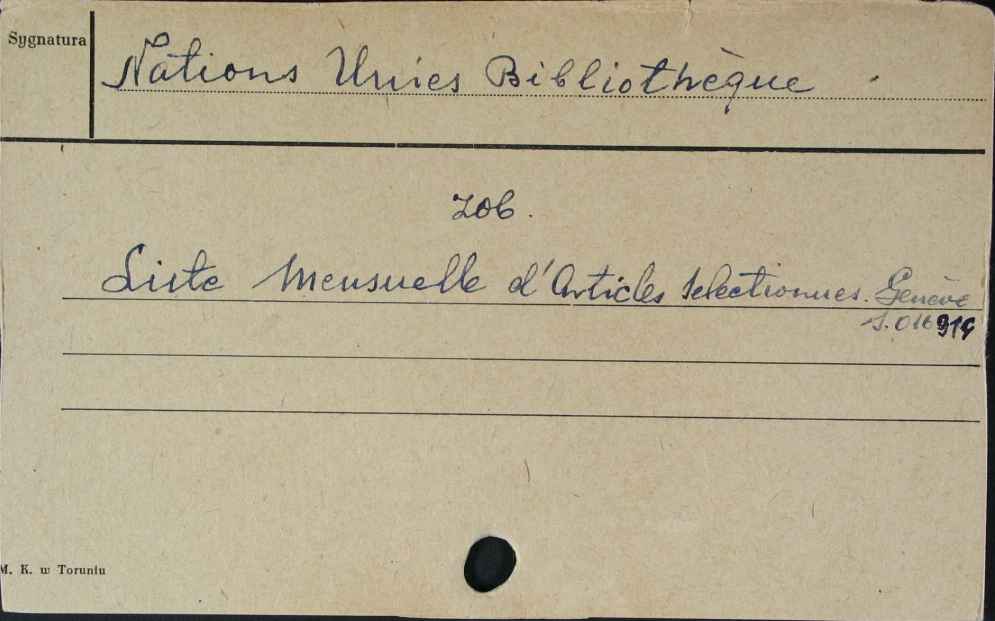 Sygnatura
Nations Unies Bibliothèque
zob.
Liste Mensuelle d'Articles Selectionnes. Genève
S. 016914
M. K. w Toruniu